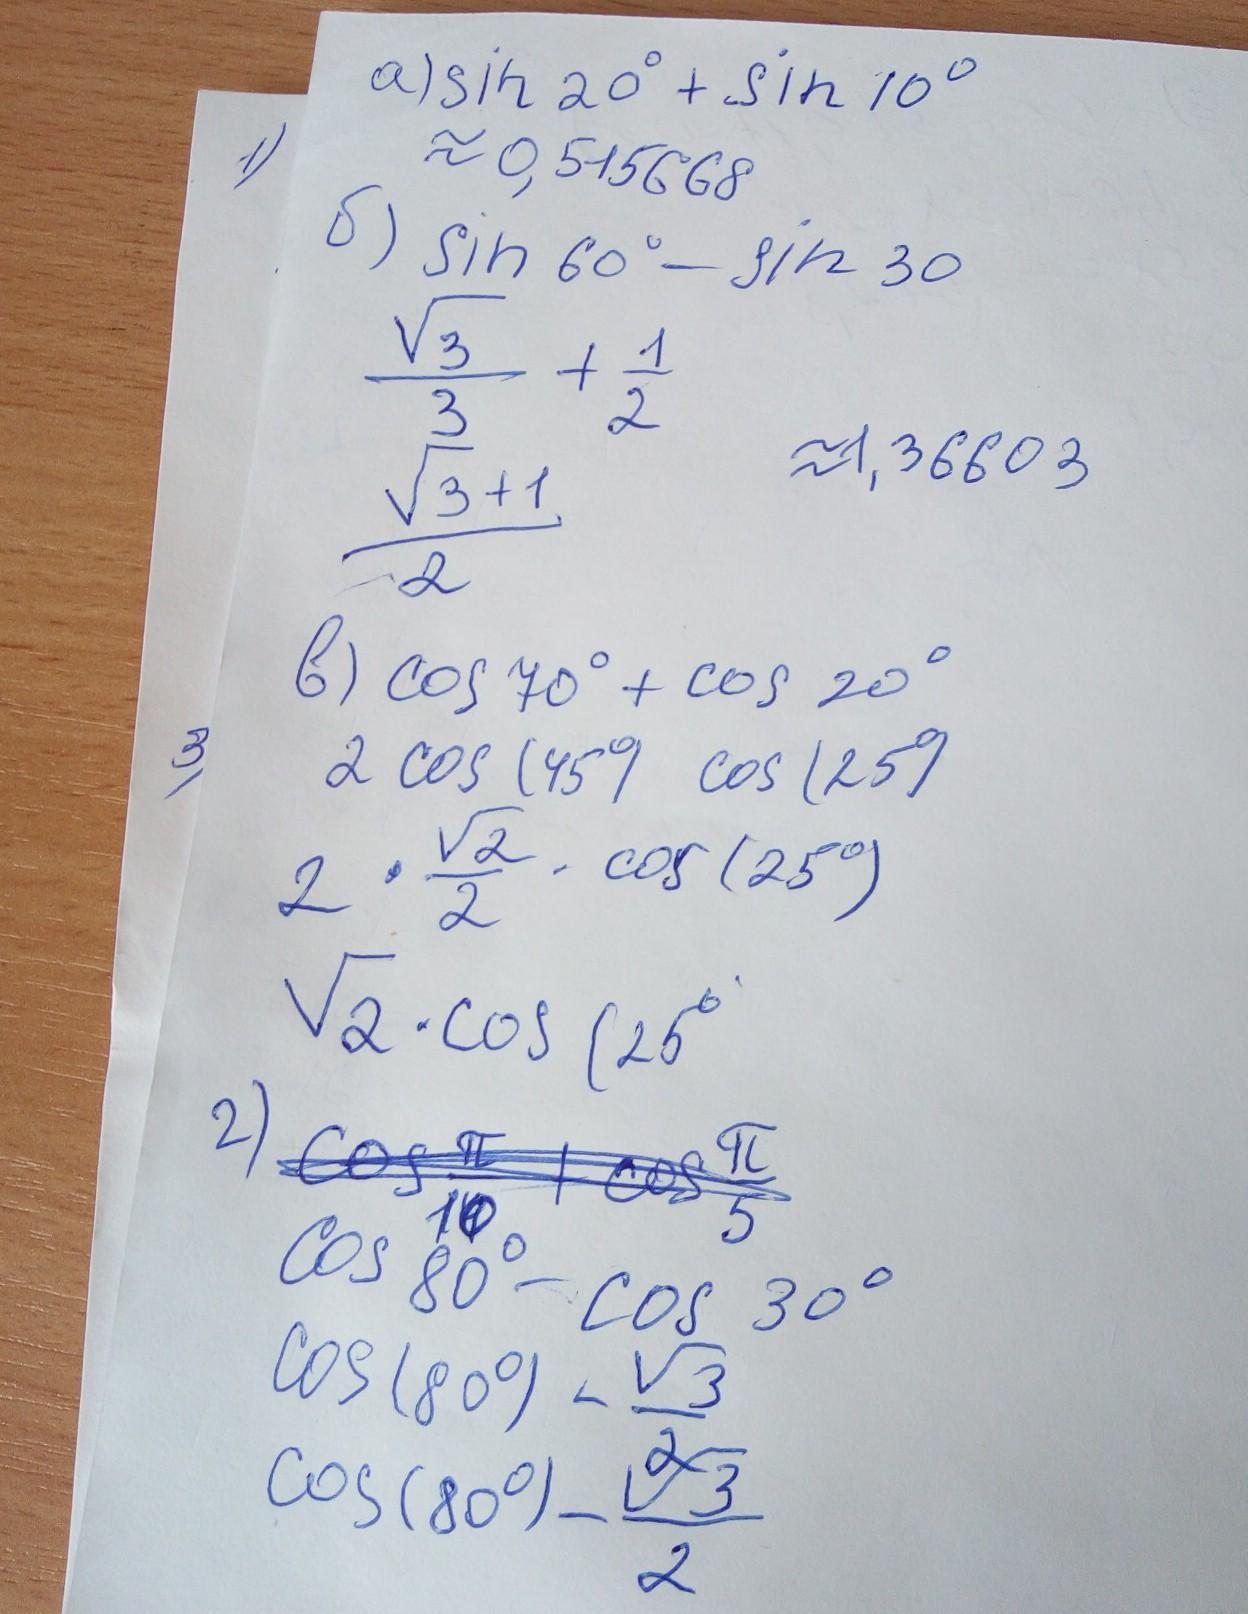 а) sin 20° + sin 10°
1) ≈ 0,515668
б) sin 60° – sin 30
√3/3 + 1/2
≈1,36603
√3+1/2
в) cos 70° + cos 20°
3) 2 cos (45°) cos (25°)
2 · √2/2 · cos (25°)
√2 · cos (25°
2) cos π/10 + cos π/5
cos 80° – cos 30°
cos(80°) - √3/2
cos(80°) – √3/2